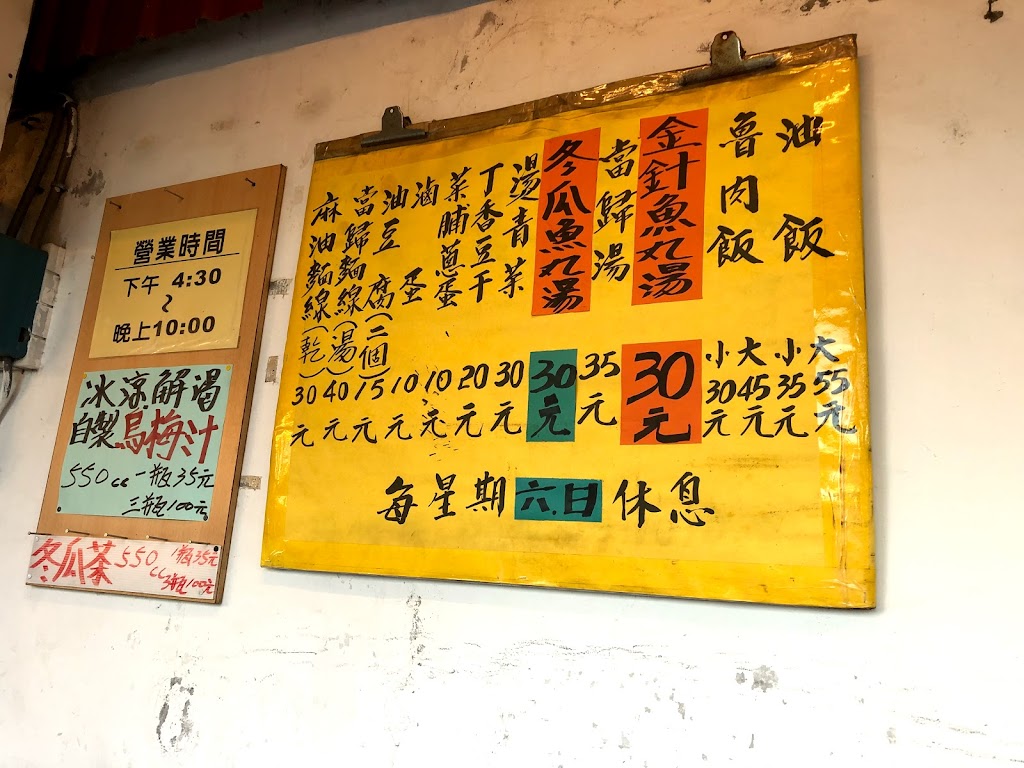 營業時間
下午 4:30
~
晚上10:00
冰涼解渴
自製烏梅汁
550cc 一瓶35元
三瓶100元
冬瓜茶 550cc 1瓶35元
3瓶100元
油飯 小35元 大55元
魯肉飯 小30元 大45元
金針魚丸湯 30元
當歸湯 35元
冬瓜魚丸湯 30元
燙青菜 30元
丁香豆干 20元
菜脯蔥蛋 10元
滷蛋 10元
油豆腐(二個) 15元
當歸麵線(湯) 40元
麻油麵線(乾) 30元
每星期六.日休息